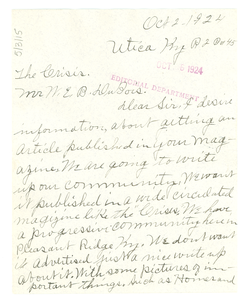 Oct 2. 1924
Utica Ky. R 2 Box 98
5/3/15
The Crisis.
EDITORIAL DEPARTMENT
OCT 1924
Mr W. E. B. DuBois.
Dear Sir: I desire
information, about getting an
Article published in your Mag-
azine. We are going to write
up our Community. We want
it published in a wide circulated
magizine like the Crisis. We have
a progressive Community here in
Pleasant Ridge Ky. We dont want
it Advertised, just a nice write up
About it. With some pictures of im-
portant things such as Homes and